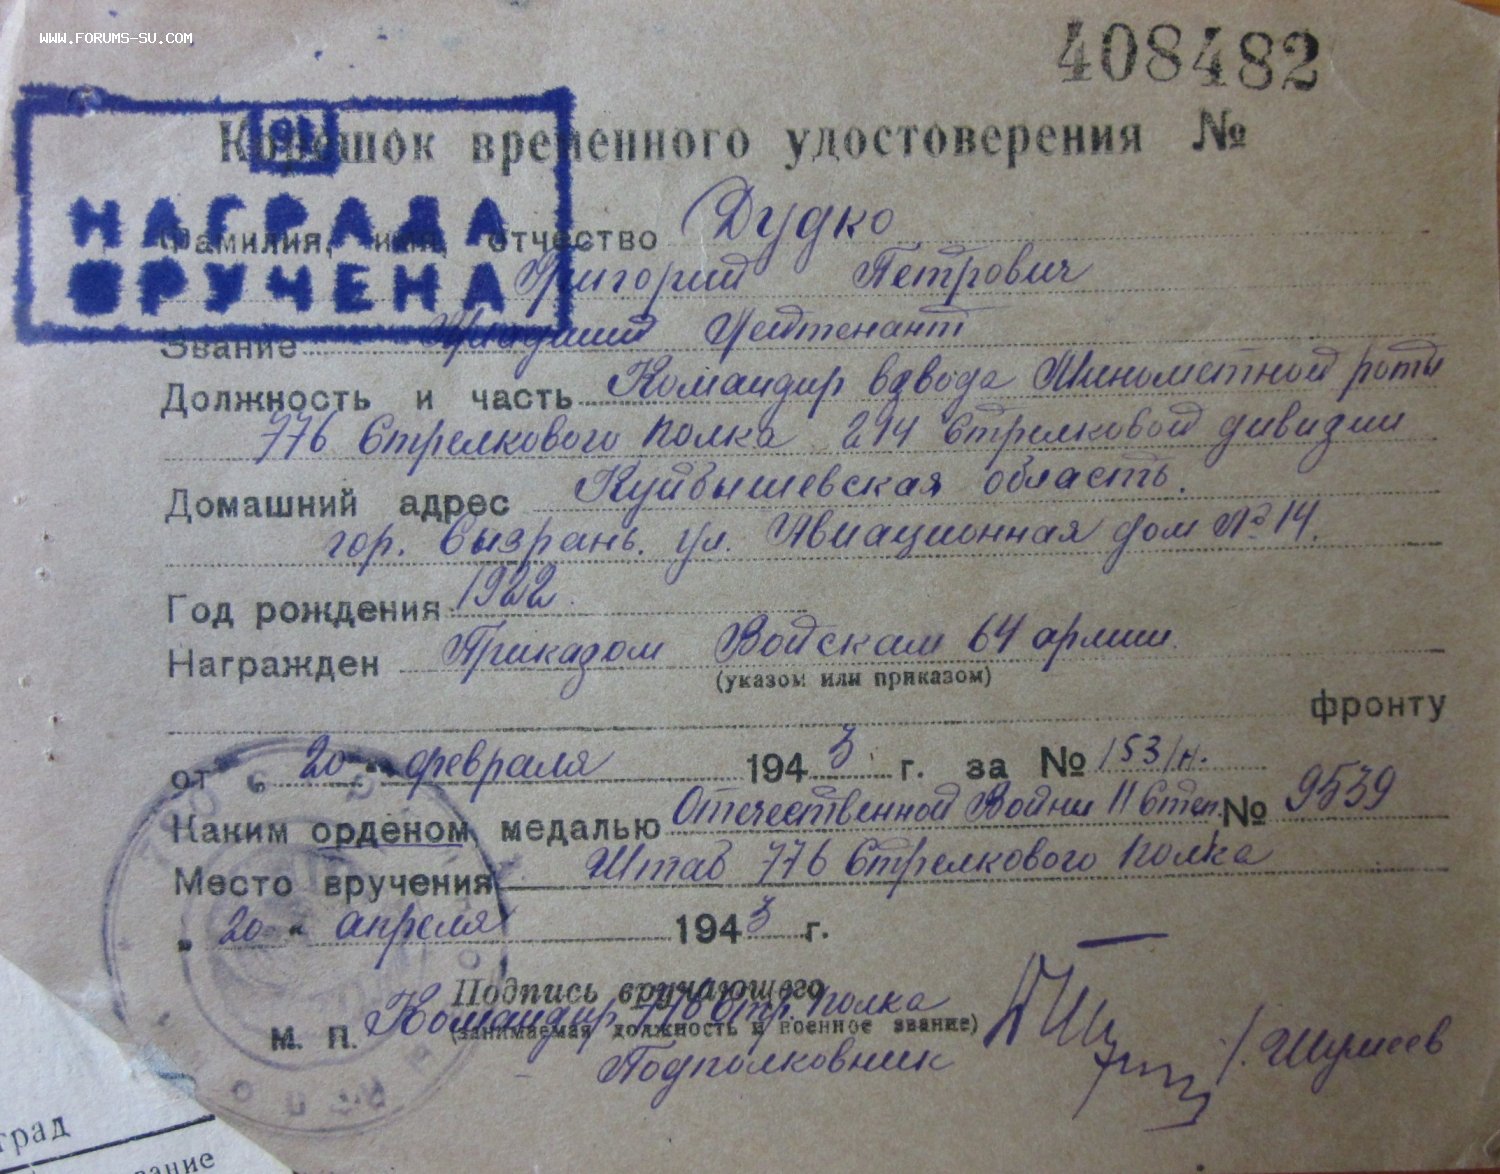 www.forums-su.com
408482
Корешок временного удостоверения №
16
НАГРАДА
ВРУЧЕНА
Фамилия, имя, отчество Дудко
Григорий Петрович
Звание Младший Лейтенант
Должность и часть Командир взвода Минометной роты
776 Стрелкового полка 214 Стрелковой дивизии
Домашний адрес Куйбышевская область.
гор. Сызрань. ул. Авиационная дом № 14.
Год рождения 1922.
Награжден Приказом Войскам 64 армии.
(указом или приказом)
фронту
от „ 20 " февраля 1943 г. за № 153/н.
Каким орденом медалью Отечественной Войны II Степ. № 9539
Место вручения Штаб 776 Стрелкового полка
„ 20 " апреля 1943 г.
Подпись вручающего
М. П. Командир 776 Стр. полка
(занимаемая должность и военное звание)
Подполковник /. Шумеев
град
вание